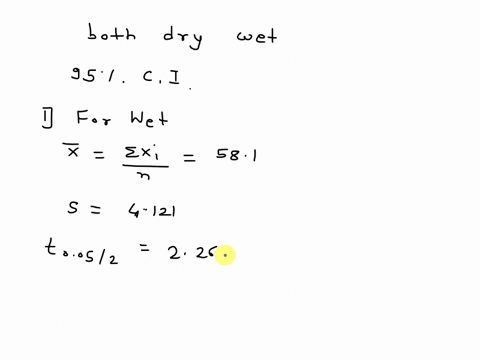 both dry wet
95%. C.I.
1] For Wet
x̄ = Σxi / n = 58.1
S = 4.121
t 0.05/2 = 2.26